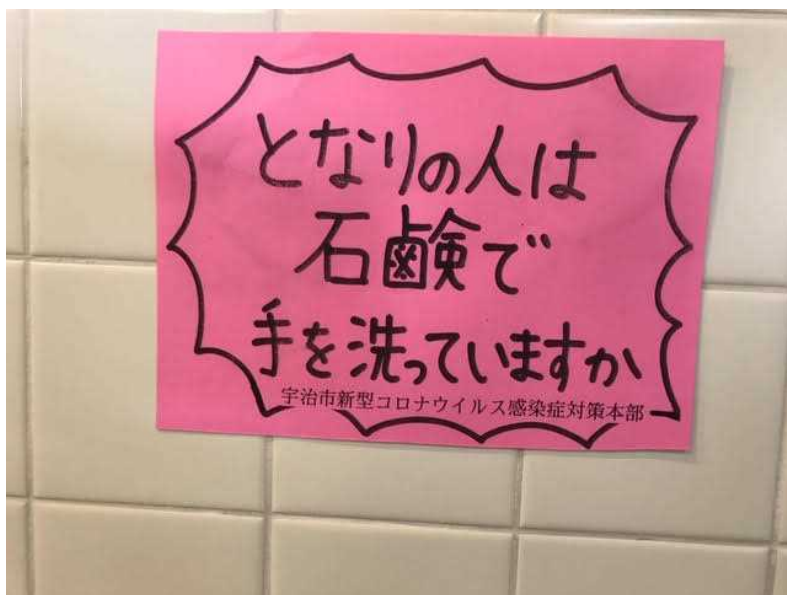 となりの人は
石鹸で
手を洗っていますか
宇治市新型コロナウイルス感染症対策本部